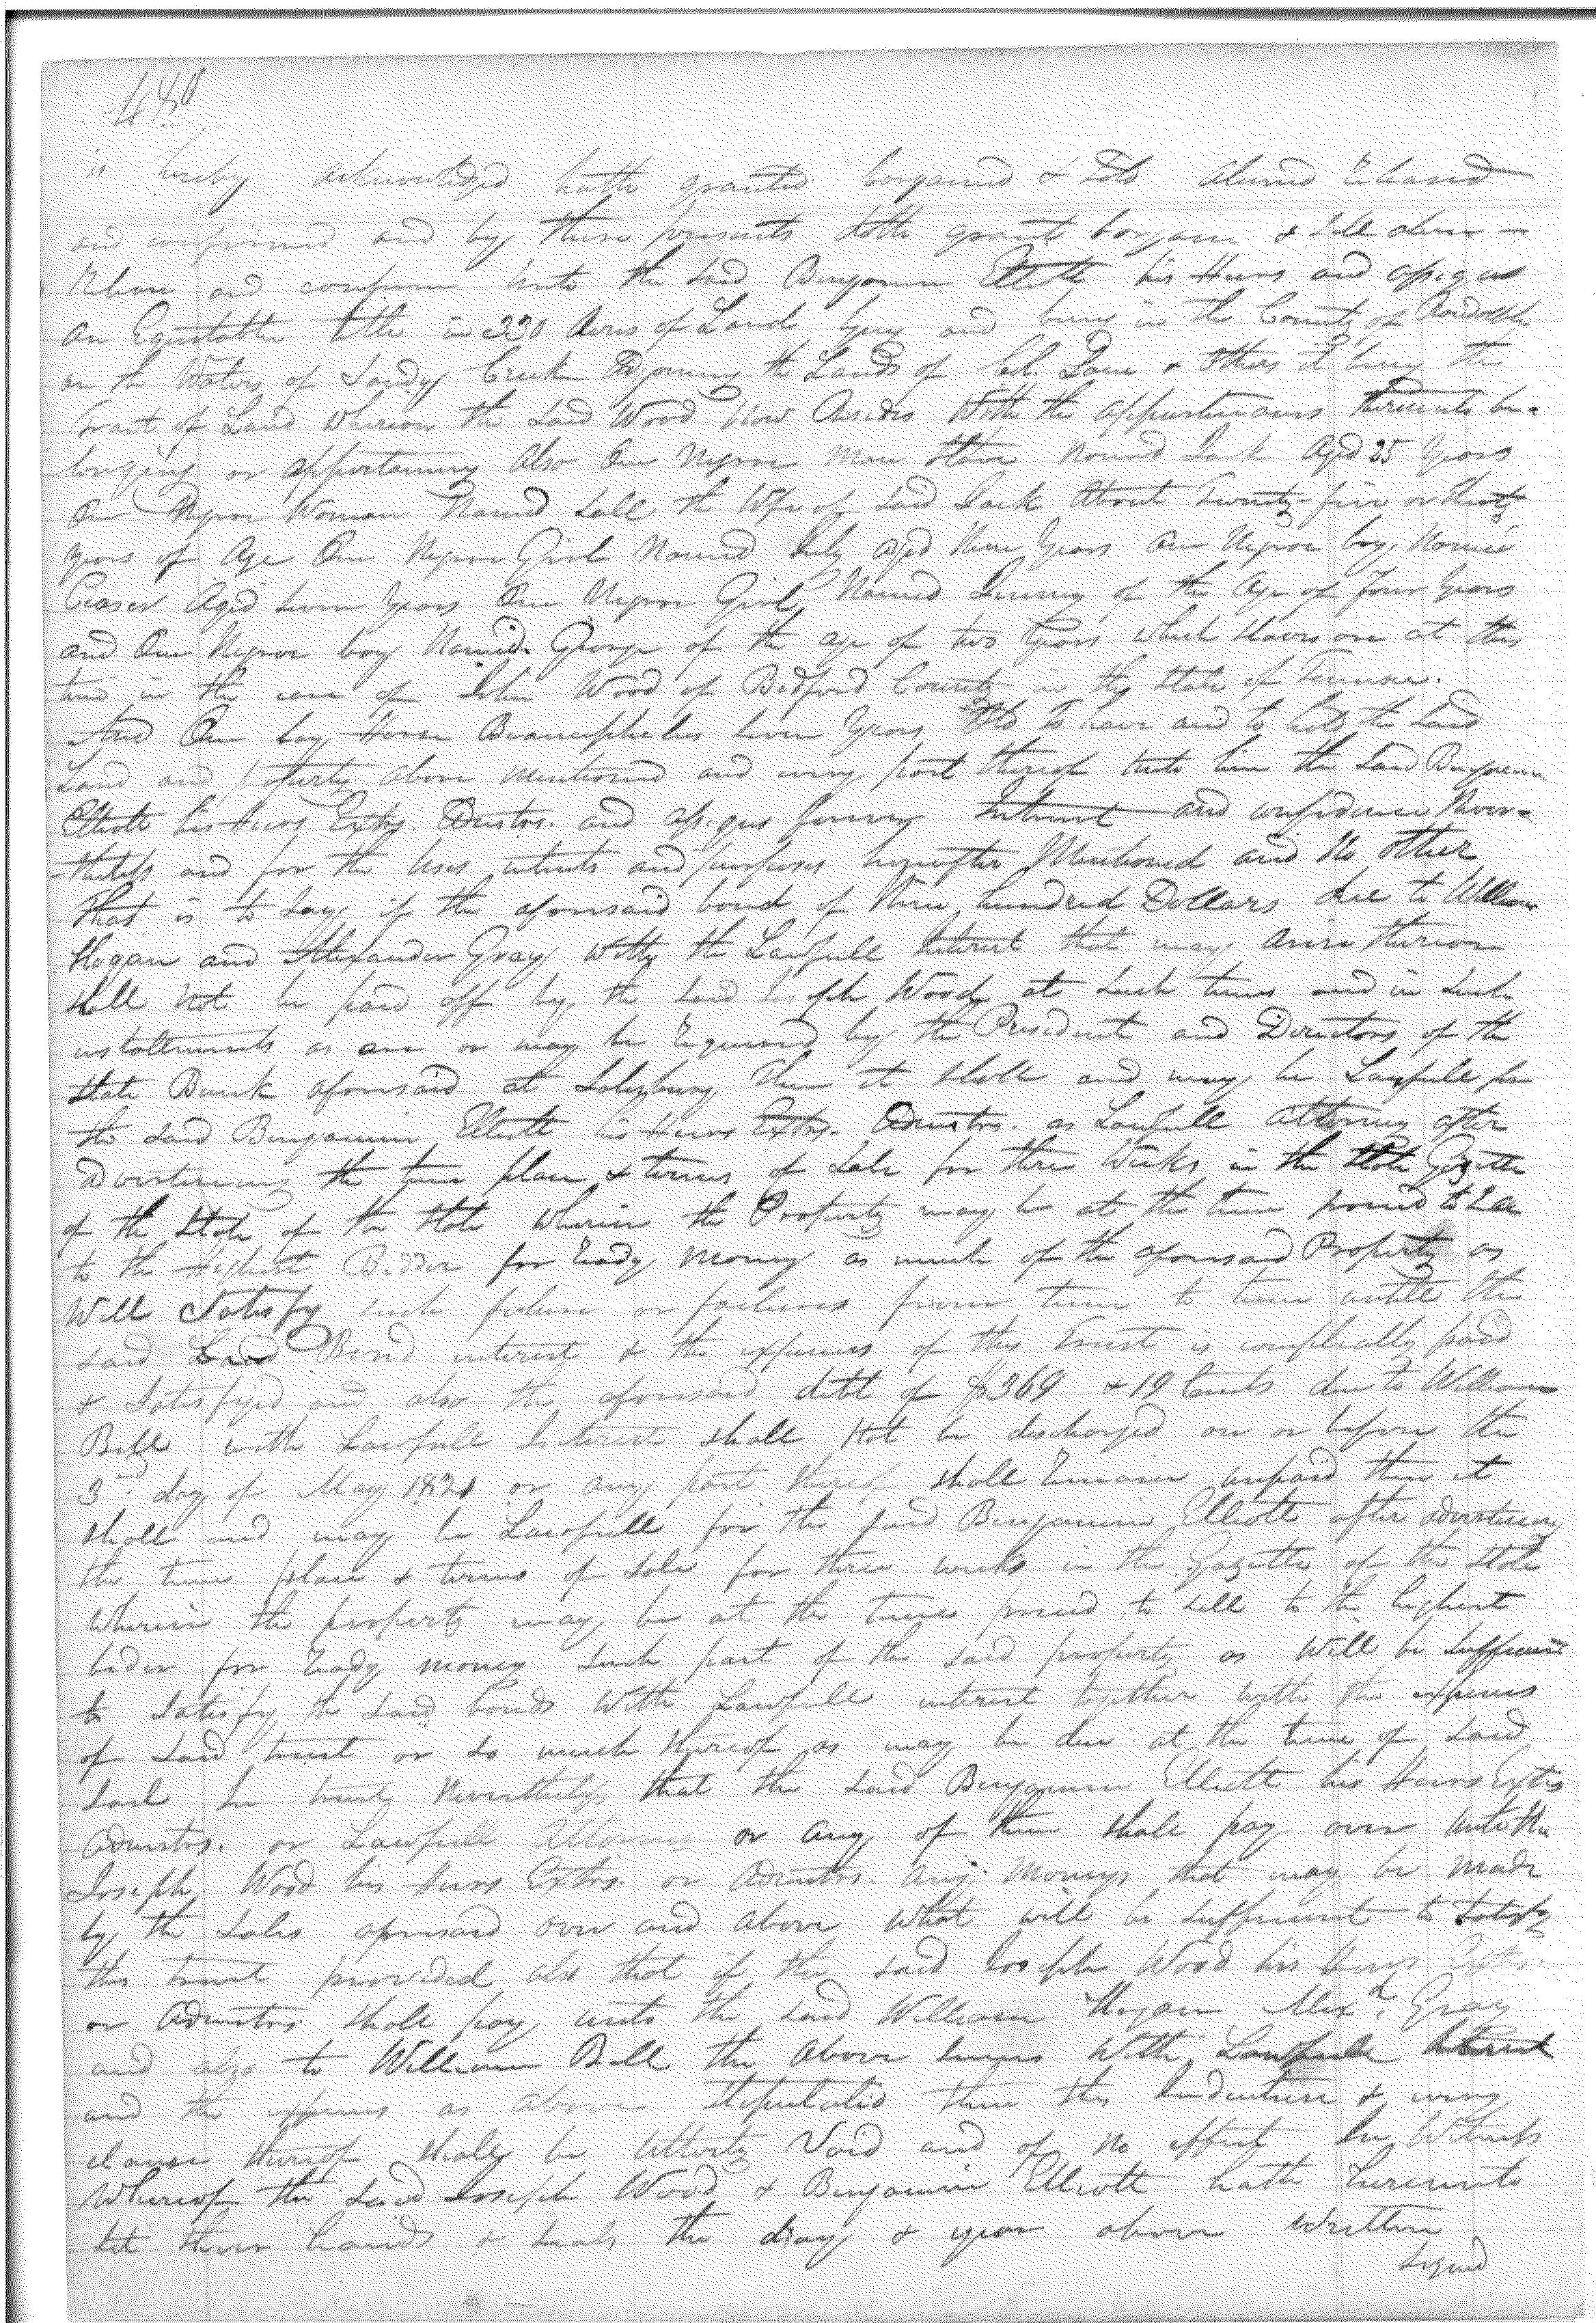 480
is hereby acknowledged hath granted bargained & Sold aliened Released
and confirmed and by these presents doth grant bargain & Sell alien
Release and confirm unto the Said Benjamin Elliott his Heirs and assigns
an Equitable title in 220 Acres of Land lying and being in the County of Randolph
on the Waters of Sandy Creek Adjoining the Lands of Col. Lane & others it being the
Tract of Land Whereon the Said Wood Now Resides With the appurtenances thereunto be-
longing or appertaining Also One Negroe Man Slave Named Jack Aged 25 Years
One Negroe Woman Named Sall the Wife of Said Jack About Twenty-five or thirty
years of Age One Negroe Girl Named aged Nine Years One Negroe boy Named
Ceaser Aged Seven Years One Negroe Girl Named of the Age of Four Years
and One Negroe boy Named George of the age of two Years Which Slaves are at this
time in the care of John Wood of Bedford County in the State of Tennessee.
And One bay Horse Seven Years Old To have and to hold the Said
Land and Property above Mentioned and every part thereof unto him the Said Benjamin
Elliott his Heirs Extrs. Admtrs. and assigns and confidence Never-
-theless and for the Uses intents and purposes hereafter Mentioned and No other
That is to Say if the aforesaid bond of Nine hundred Dollars due to William
Hogan and Alexander Gray With the Lawfull Interest that may Arise thereon
Shall Not be paid off by the Said Joseph Wood at Such times and in Such
installments as are or may be Required by the President and Directors of the
State Bank aforesaid at Salisbury Then it Shall and may be Lawfull for
the Said Benjamin Elliott his Heirs Extrs. Admtrs. or Lawfull Attorney after
advertising the time place & terms of Sale for three Weeks in the State Gazette
of the State of the State Wherein the Property may be at the time proceed to Sell
to the Highest Bidder for Ready Money as much of the aforesaid Property as
Will Satisfy such failure or failures from time to time untill the
Said Bond interest & the expenses of this Trust is completally paid
& Satisfyed and also the aforesaid debt of $369 & 19 Cents due to William
Bell with Lawfull Interest shall Not be discharged on or before the
3rd day of May 1821 or any part thereof shall Remain unpaid then it
shall and may be Lawfull for the said Benjamin Elliott after advertising
the time place & terms of Sale for three weeks in the Gazette of the State
Wherein the property may be at the time proceed to Sell to the highest
bider for Ready money Such part of the Said property as Will be Sufficient
to Satisfy the Said bonds With Lawfull interest together with the expenses
of Said trust or so much thereof as may be due at the time of Said
Sail In trust Nevertheless that the Said Benjamin Elliott his Heirs Extrs
Admtrs. or Lawfull Attorney or any of them shall pay over unto the
Joseph Wood his Heirs Extrs. or Admtrs. any Moneys that may be Made
by the Sales aforesaid over and above What will be Sufficient to Satisfy
this trust provided also that if the Said Joseph Wood his Heirs Extrs.
or Admtrs. Shall pay unto the Said William Hogan Alexd. Gray
and also to William Bell the above Sums With Lawfull Interest
and the expenses as above Stipulated then this Indenture & every
clause thereof Shall be Utterly Void and of No effect In Witness
Whereof the Said Joseph Wood & Benjamin Elliott hath hereunto
Set their hands & Seals the day & year above Written
Signed